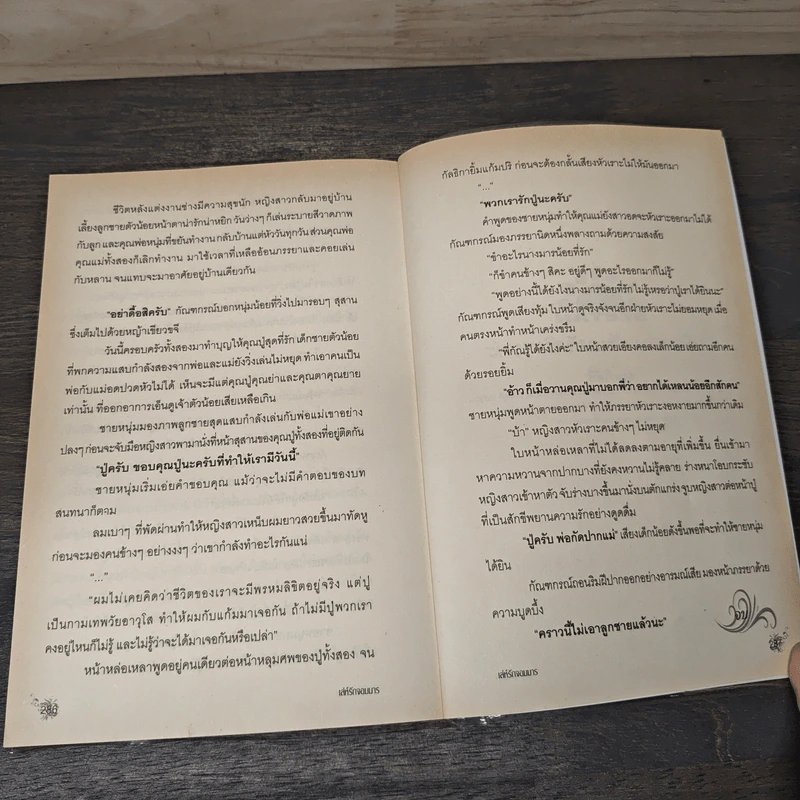 ชีวิตหลังแต่งงานช่างมีความสุขนัก หญิงสาวกลับมาอยู่บ้าน
เลี้ยงลูกชายตัวน้อยหน้าตาน่ารักน่าหยิก วันว่างๆ ก็เล่นระบายสีวาดภาพ
กับลูก และคุณพ่อหนุ่มที่ขยันทำงาน กลับบ้านแต่หัววันทุกวัน ส่วนคุณพ่อ
คุณแม่ทั้งสองก็เลิกทำงาน มาใช้เวลาที่เหลืออ้อนภรรยาและคอยเล่น
กับหลาน จนแทบจะมาอาศัยอยู่บ้านเดียวกัน
"อย่าดื้อสิครับ" กัณฑกรณ์บอกหนุ่มน้อยที่วิ่งไปมารอบๆ สุสาน
ซึ่งเต็มไปด้วยหญ้าเขียวขจี
วันนี้ครอบครัวทั้งสองมาทำบุญให้คุณปู่สุดที่รัก เด็กชายตัวน้อย
ที่พกความแสบกำลังสองจากพ่อและแม่ยังวิ่งเล่นไม่หยุด ทำเอาคนเป็น
พ่อกับแม่อดปวดหัวไม่ได้ เห็นจะมีแต่คุณปู่คุณย่าและคุณตาคุณยาย
เท่านั้น ที่ออกอาการเอ็นดูเจ้าตัวน้อยเสียเหลือเกิน
ชายหนุ่มมองภาพลูกชายสุดแสบกำลังเล่นกับพ่อแม่เขาอย่าง
ปลงๆ ก่อนจะจับมือหญิงสาวพามานั่งที่หน้าสุสานของคุณปู่ทั้งสองที่อยู่ติดกัน
"ปู่ครับ ขอบคุณปู่นะครับที่ทำให้เรามีวันนี้"
ชายหนุ่มเริ่มเอ่ยคำขอบคุณ แม้ว่าจะไม่มีคำตอบของบท
สนทนาก็ตาม
ลมเบาๆ ที่พัดผ่านทำให้หญิงสาวเหน็บผมยาวสวยขึ้นมาทัดหู
ก่อนจะมองคนข้างๆ อย่างงงๆ ว่าเขากำลังทำอะไรกันแน่
"..."
"ผมไม่เคยคิดว่าชีวิตของเราจะมีพรหมลิขิตอยู่จริง แต่ปู่
เป็นกามเทพวัยอาวุโส ทำให้ผมกับแก้มมาเจอกัน ถ้าไม่มีปู่พวกเรา
คงอยู่ไหนก็ไม่รู้ และไม่รู้ว่าจะได้มาเจอกันหรือเปล่า"
หน้าหล่อเหลาพูดอยู่คนเดียวต่อหน้าหลุมศพของปู่ทั้งสอง จน
286
เล่ห์รักจอมมาร
กัลธิกายิ้มแก้มปริ ก่อนจะต้องกลั้นเสียงหัวเราะไม่ให้มันออกมา
"..."
"พวกเรารักปู่นะครับ"
คำพูดของชายหนุ่มทำให้คุณแม่ยังสาวอดจะหัวเราะออกมาไม่ได้
กัณฑกรณ์มองภรรยานิดหนึ่งพลางถามด้วยความสงสัย
"ขำอะไรนางมารน้อยที่รัก"
"ก็ขำคนข้างๆ สิคะ อยู่ดีๆ พูดอะไรออกมาก็ไม่รู้"
"พูดอย่างนี้ได้ยังไงนางมารน้อยที่รัก ไม่รู้เหรอว่าปู่เราได้ยินนะ"
กัณฑกรณ์พูดเสียงทุ้ม ใบหน้าดูจริงจังจนอีกฝ่ายหัวเราะไม่ยอมหยุด เมื่อ
คนตรงหน้าทำหน้าเคร่งขรึม
"พี่กัณรู้ได้ยังไงค่ะ" ใบหน้าสวยเอียงคอลงเล็กน้อย เอ่ยถามอีกคน
ด้วยรอยยิ้ม
"อ้าว ก็เมื่อวานคุณปู่มาบอกพี่ว่า อยากได้เหลนน้อยอีกสักคน"
ชายหนุ่มพูดหน้าตายออกมา ทำให้ภรรยาหัวเราะงอหงายมากขึ้นกว่าเดิม
"บ้า" หญิงสาวหัวเราะคนข้างๆ ไม่หยุด
ใบหน้าหล่อเหลาที่ไม่ได้ลดลงตามอายุที่เพิ่มขึ้น ยื่นเข้ามา
หาความหวานจากปากบางที่ยังคงหวานไม่รู้คลาย ร่างหนาโอบกระชับ
หญิงสาวเข้าหาตัว จับร่างบางขึ้นมานั่งบนตักแกร่ง จูบหญิงสาวต่อหน้าปู่
ที่เป็นสักขีพยานความรักอย่างดูดดื่ม
"ปู่ครับ พ่อกัดปากแม่" เสียงเด็กน้อยดังขึ้นพอที่จะทำให้ชายหนุ่ม
ได้ยิน
กัณฑกรณ์ถอนริมฝีปากออกอย่างอารมณ์เสีย มองหน้าภรรยาด้วย
ความบูดบึ้ง
"คราวนี้ไม่เอาลูกชายแล้วนะ"
จบ
287
เล่ห์รักจอมมาร